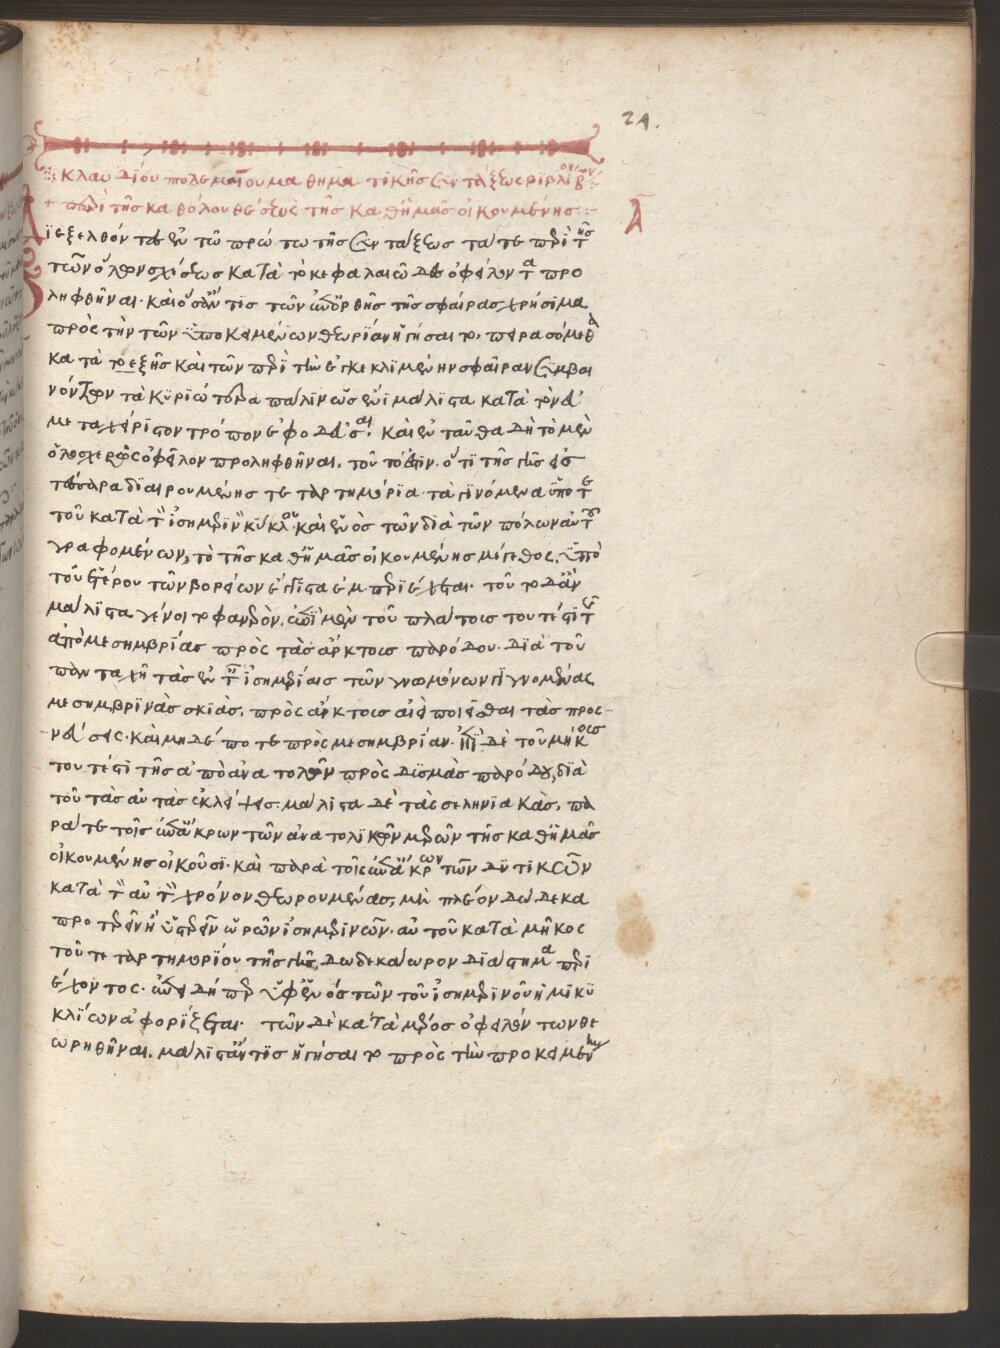 24.
κλαυδίου πτολεμαίου μαθηματικῆς συντάξεως βιβλίον β^ον
+ περὶ τῆς καθόλου θέσεως τῆς καθ' ἡμᾶς οἰκουμένης
Ā
Διεξελθόντες ἐν τῷ πρώτῳ τῆς συντάξεως τά τε περὶ τῆς
τῶν ὅλων σχέσεως κατὰ τὸ κεφαλαιῶδες ὀφείλοντα προ
ληφθῆναι· καὶ ὅσα ἄν τις τῶν ἐπ' ὀρθῆς τῆς σφαίρας χρήσιμα
πρὸς τὴν τῶν ὑποκειμένων θεωρίαν ἡγήσαιτο, πειρασόμεθα
κατὰ τὸ ἑξῆς καὶ τῶν περὶ τὴν ἐγκεκλιμένην σφαῖραν συμβαι
νόντων τὰ κυριώτερα πάλιν ὡς ἔνι μάλιστα κατὰ τὸν εὐ
μεταχείριστον τρόπον ἐφοδεῦσαι. καὶ ἐνταῦθα δὴ τὸ μὲν
ὁλοσχερῶς ὀφεῖλον προληφθῆναι. τοῦτό ἐστιν. ὅτι τῆς γῆς εἰς
τέσσαρα διαιρουμένης τεταρτημόρια. τὰ γινόμενα ὑπό τε
τοῦ κατὰ τὸν ἰσημερινὸν κύκλου· καὶ ἑνὸς τῶν διὰ τῶν πόλων αὐτοῦ
γραφομένων, τὸ τῆς καθ' ἡμᾶς οἰκουμένης μέγεθος, ὑπὸ
τοῦ ἑτέρου τῶν βορείων ἔγγιστα ἐμπεριέχεται. τοῦτο δ' ἂν
μάλιστα γένοιτο φανερὸν, ἐπὶ μὲν τοῦ πλάτους τουτέστι τῆς
ἀπὸ μεσημβρίας πρὸς τὰς ἄρκτους παρόδου. διὰ τοῦ
πανταχῆ τὰς ἐν ταῖς ἰσημερίαις τῶν γνωμόνων γιγνομένας
μεσημβρινὰς σκιὰς, πρὸς ἄρκτους αἰεὶ ποιεῖσθαι τὰς προς-
νεύσεις· καὶ μηδέποτε πρὸς μεσημβρίαν. ἐπὶ δὲ τοῦ μήκους
τουτέστι τῆς ἀπὸ ἀνατολῶν πρὸς δυσμὰς παρόδου, διὰ
τοῦ τὰς αὐτὰς ἐκλείψεις. μάλιστα δὲ τὰς σεληνιακὰς, πα
ρά τε τοῖς ἐπ' ἄκρων τῶν ἀνατολικῶν μερῶν τῆς καθ' ἡμᾶς
οἰκουμένης οἰκοῦσι. καὶ παρὰ τοῖς ἐπ' ἄκρων τῶν δυτικῶν
κατὰ τὸν αὐτὸν χρόνον θεωρουμένας, μὴ πλέον δώδεκα
προτερεῖν ἢ ὑστερεῖν ὡρῶν ἰσημερινῶν. αὐτοῦ κατὰ μῆκος
τοῦ τεταρτημορίου τῆς γῆς δωδεκάωρον διάστημα περι
έχοντος. ἐπειδήπερ ὑφ' ἑνὸς τῶν τοῦ ἰσημερινοῦ ἡμικυ
κλίων ἀφορίζεται. τῶν δὲ κατὰ μέρος ὀφειλόντων θε
ωρηθῆναι, μάλιστα ἄν τις ἡγήσαιτο πρὸς τὴν προκειμένην